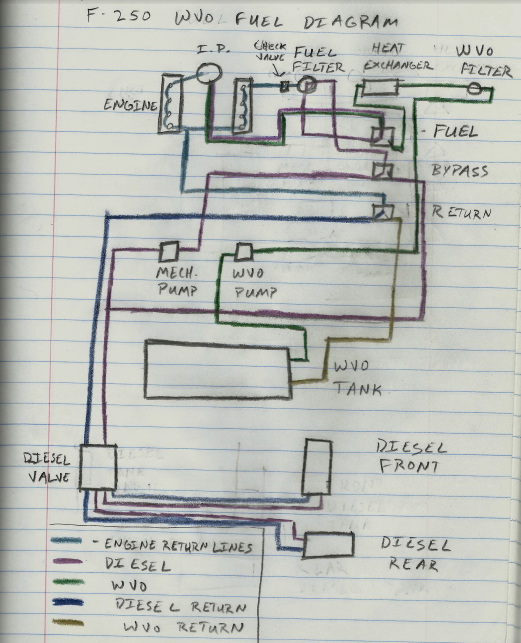 F-250 WVO FUEL DIAGRAM
I.P.
CHECK
VALVE
FUEL
FILTER
HEAT
EXCHANGER
WVO
FILTER
ENGINE
- FUEL
BYPASS
RETURN
MECH.
PUMP
WVO
PUMP
WVO
TANK
DIESEL
VALVE
DIESEL
FRONT
DIESEL
REAR
- ENGINE RETURN LINES
DIESEL
WVO
DIESEL RETURN
WVO RETURN